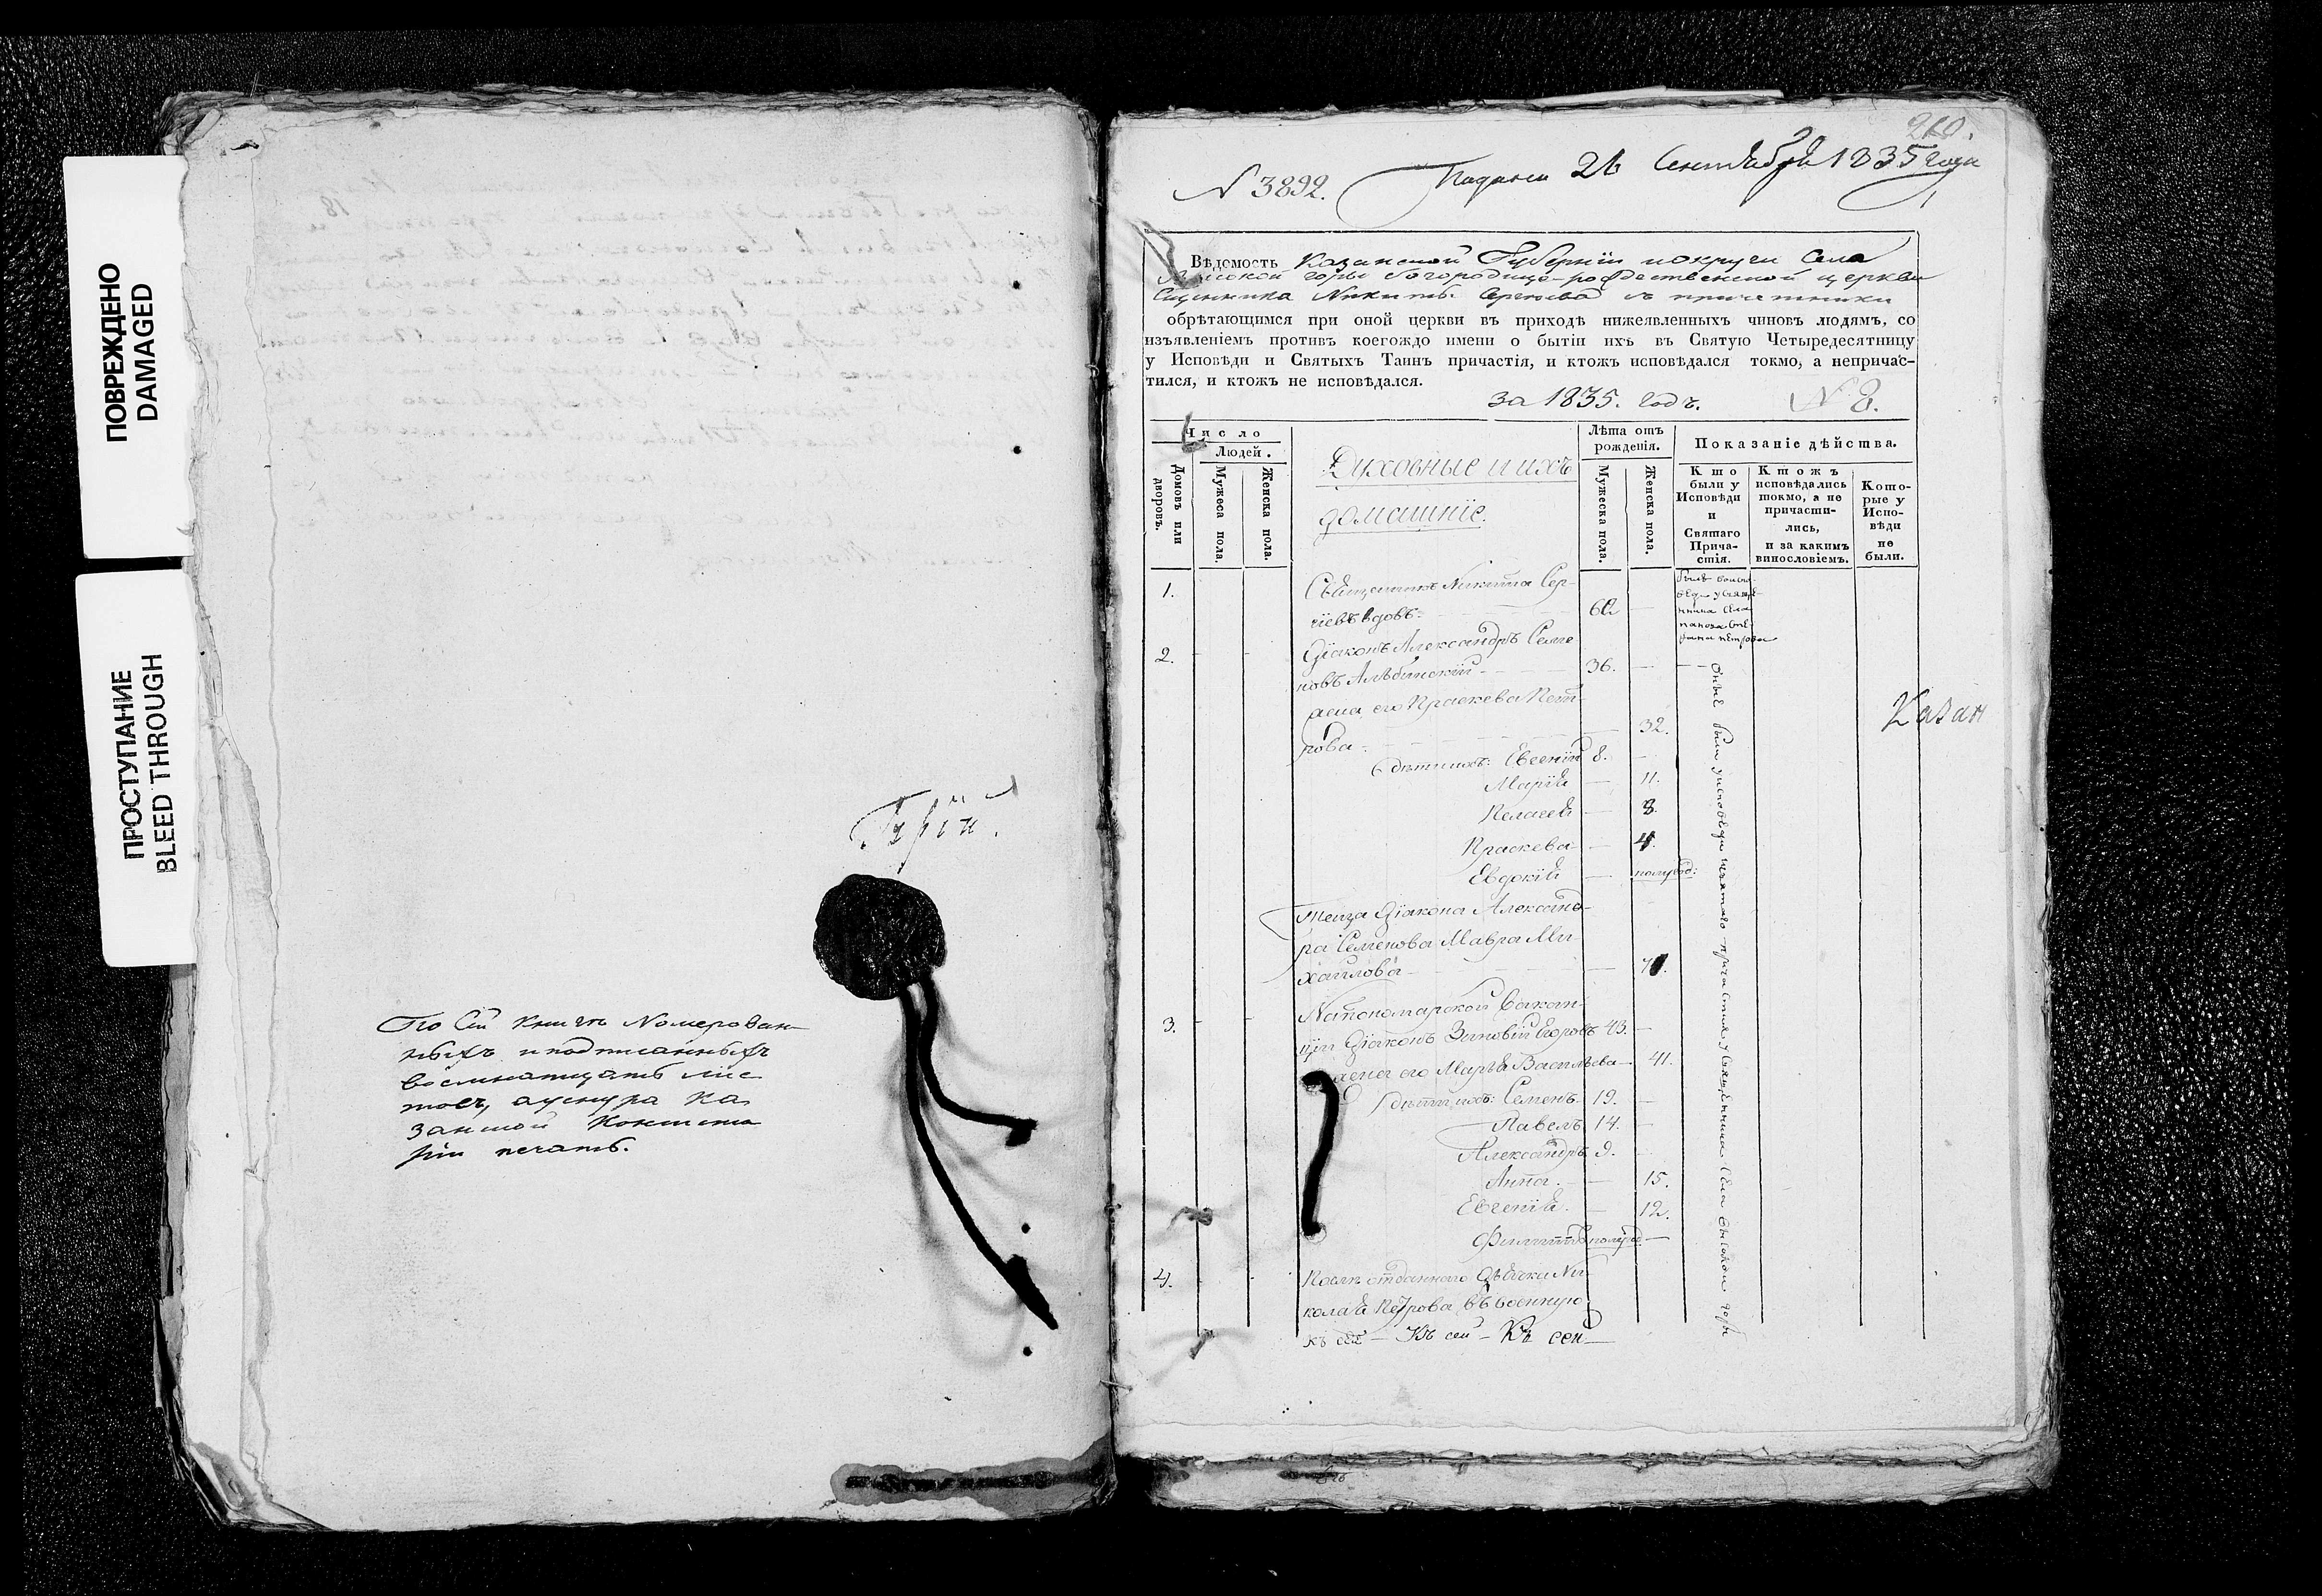 ПОВРЕЖДЕНО
DAMAGED
ПРОСТУПАНИЕ
BLEED THROUGH
По сей книгѣ номерован-
ныхъ и подписанныхъ
восмнатцать лис
товъ, а у снура Ка
занской Консисто
рiи печать.
260.
N 3892. Подана 26 Сентября 1835 года
Вѣдомость Казанской Губернiи и округи Села
Высокой горы Богородице-рождественской церкви
Сщенника Никиты Сергѣева съ причетники
обрѣтающимся при оной церкви въ приходѣ нижеявленныхъ чиновъ людямъ, со
изъявленіемъ противъ коегождо имени о бытіи ихъ въ Святую Четыредесятницу
у Исповѣди и Святыхъ Таинъ причастія, и ктожъ исповѣдался токмо, а непричас-
тился, и ктожъ не исповѣдался.
за 1835. годъ. N 8.
Число
Людей.
Домовъ или дворовъ.
Мужеса пола.
Женска пола.
Духовные и ихъ
домашніе.
Лѣта отъ
рожденія.
Мужеска пола.
Женска пола.
Показаніе дѣйства.
Кто
были у
Исповѣди
и
Святаго
Прича-
стія.
Ктожъ
исповѣдались
токмо, а не
причасти-
лись,
и за какимъ
винословіемъ.
Кото-
рые у
Испо-
вѣди
не
были.
1. Священникъ Никита Сер-
гіевъ вдовъ. 60
2. Діаконъ Александръ Семе
новъ Альбинскій 36.
жена его Праскева Пет-
рова. 32.
дѣти ихъ: Евгеній 8.
Марія 11.
Пелагея 8.
Праскева 4.
Евдокія полугод:
Теща Діакона Александ-
ра Семенова Мавра Ми-
хайлова
Казан
3. На пономарской вакан-
ціи Діаконъ Зиновій Егоровъ 43.
жена его Марья Васильева 41.
дѣти ихъ: Семенъ 19.
Павелъ 14.
Александръ 9.
Анна. 15.
Евгенія. 12.
Филиппъ полугод
Оные были у исповѣди и святаго причастія у священника села высокой горы
4. Послѣ отданнаго дьячка Ни-
колая Петрова въ военную
къ сей — Къ сей — Къ сей